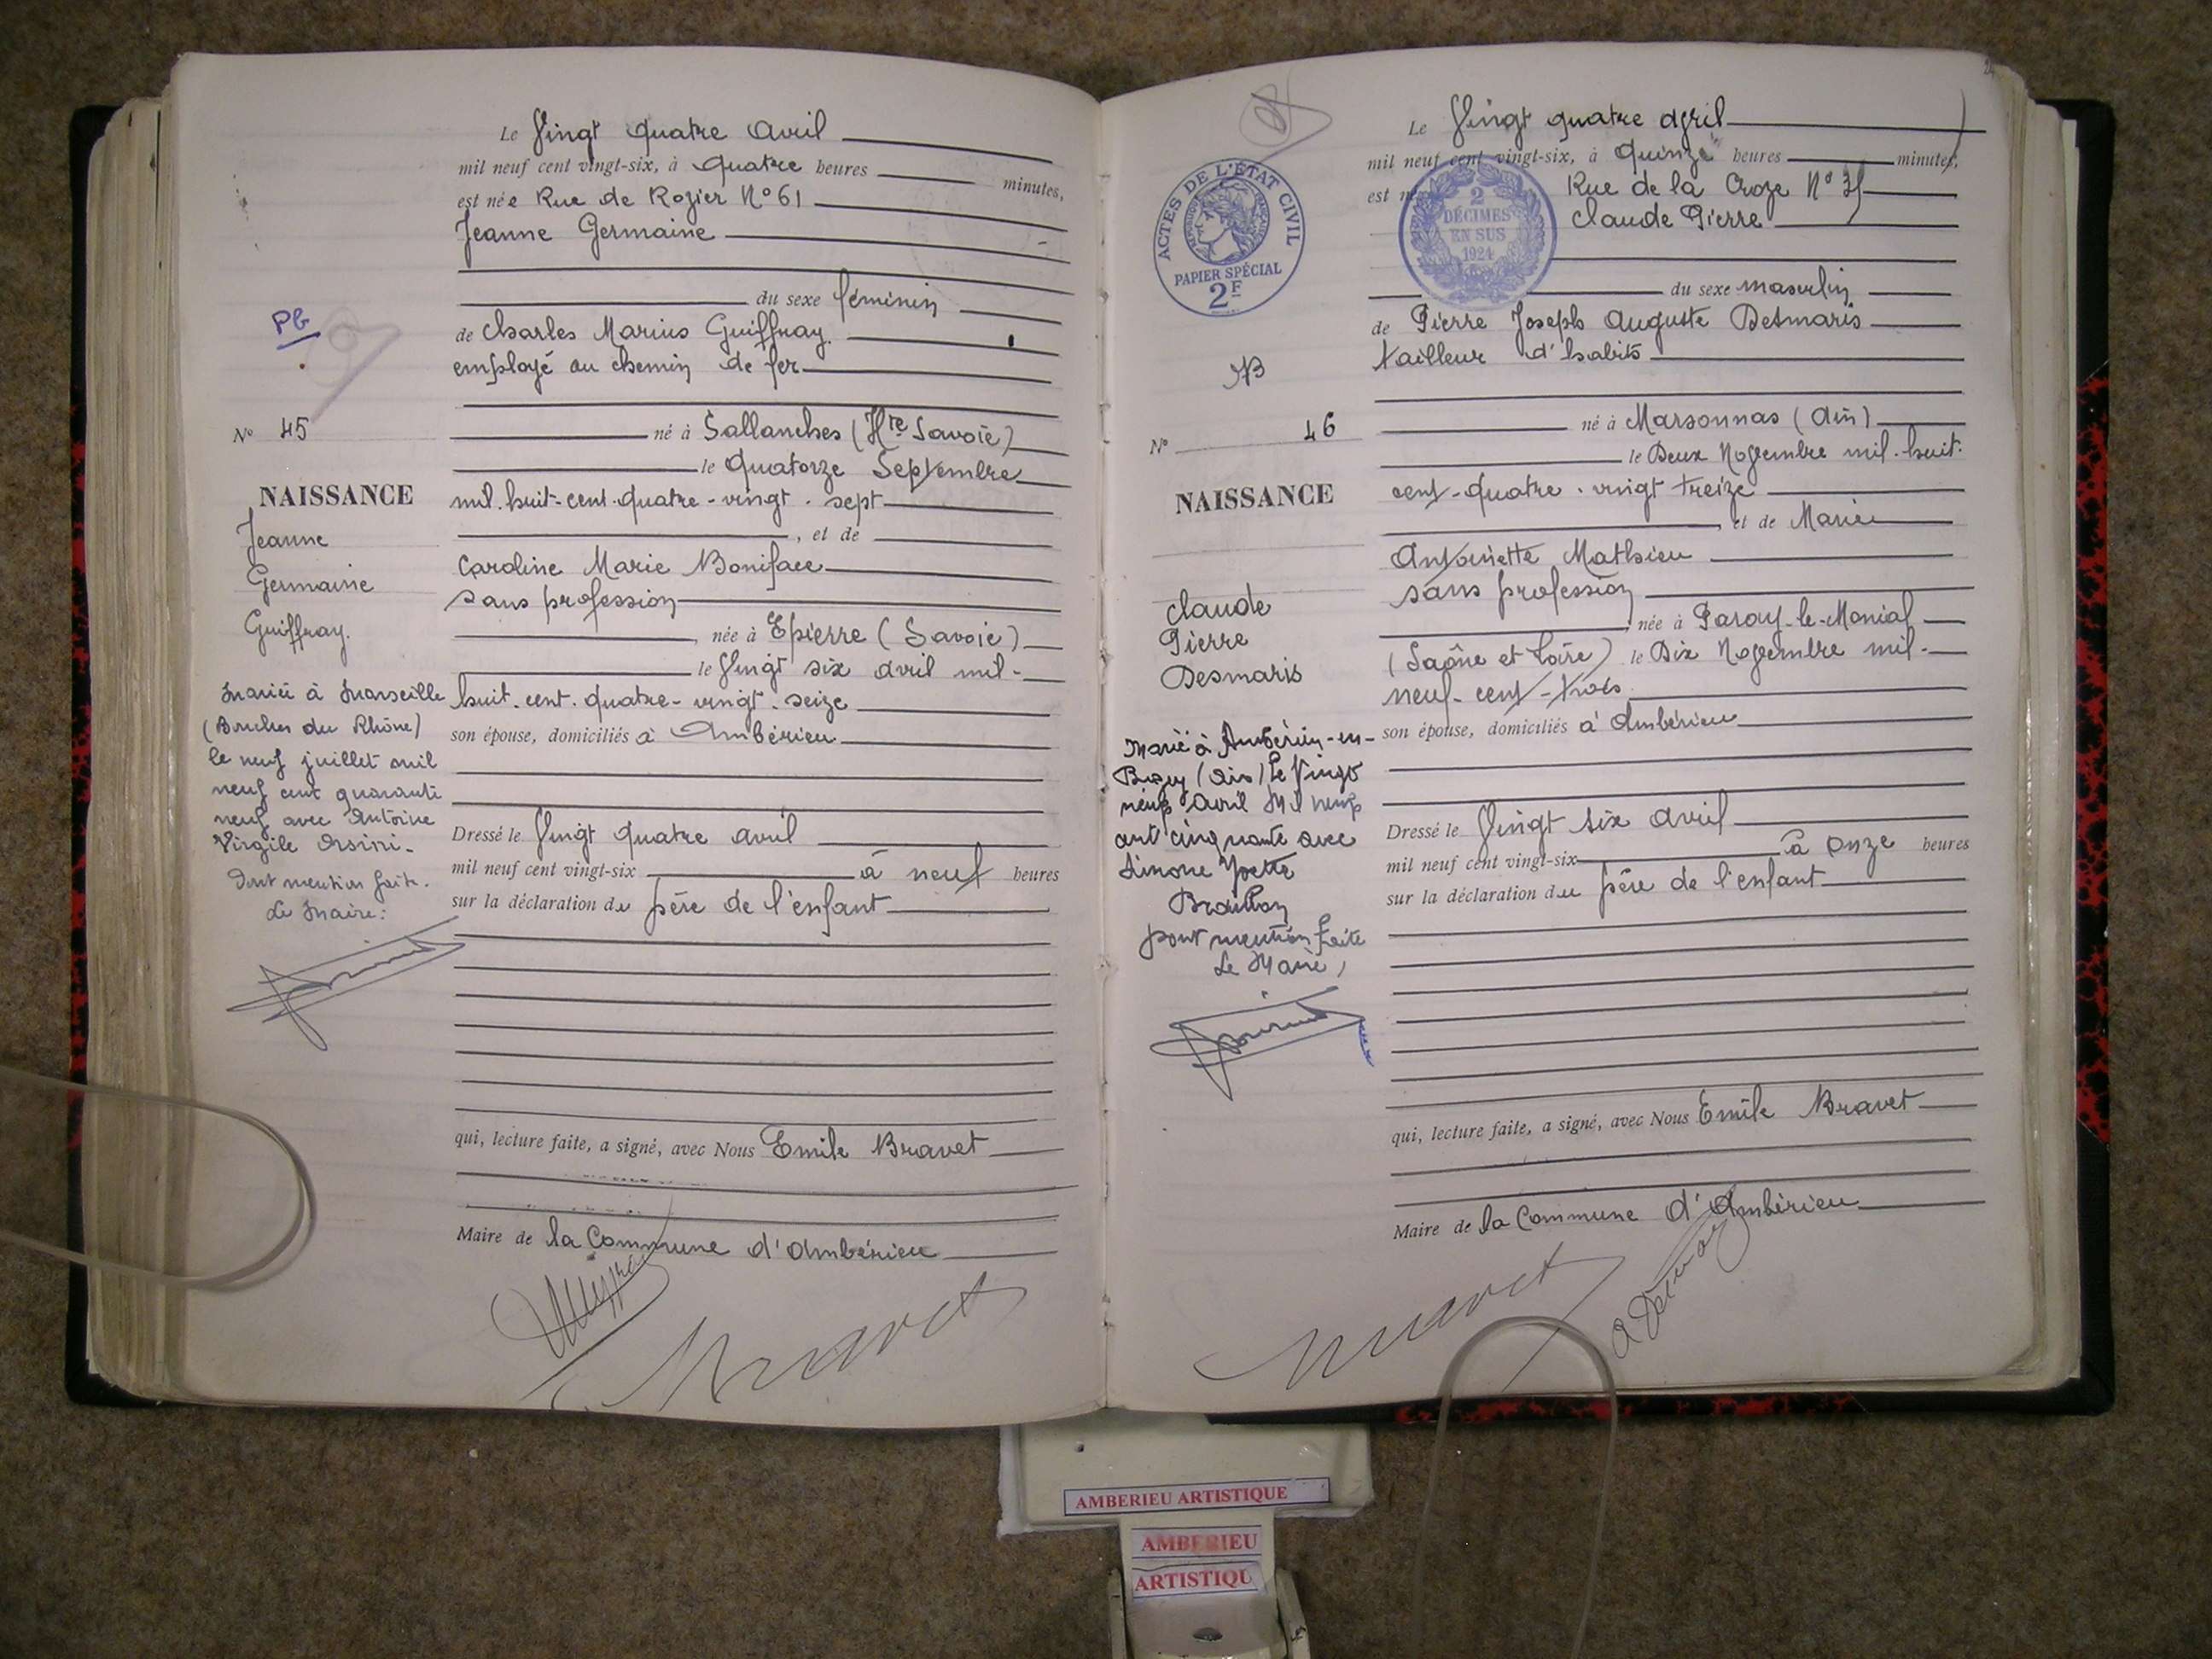 Le Vingt quatre avril
mil neuf cent vingt-six, à quatre heures minutes,
est née Rue de Rozier N° 61
Jeanne Germaine
du sexe féminin
Pb
de Charles Marius Guiffray
employé au chemin de fer
N° 45
né à Sallanches (Hte Savoie)
le quatorze Septembre
mil-huit-cent-quatre-vingt-sept
, et de
Caroline Marie Boniface
sans profession
, née à Epierre (Savoie)
le Vingt six avril mil-
huit-cent-quatre-vingt-seize
son épouse, domiciliés à Ambérieu
Dressé le Vingt quatre avril
mil neuf cent vingt-six à neuf heures
sur la déclaration du père de l'enfant
qui, lecture faite, a signé, avec Nous Emile Bravet
Maire de la Commune d'Ambérieu
Bravet
NAISSANCE
Jeanne
Germaine
Guiffray.
Mariée à Marseille
(Bouches du Rhône)
le neuf juillet mil
neuf cent quarante
neuf avec Antoine
Virgile Orsini-
Dont mention faite.
Le Maire:
24
Le Vingt quatre avril
mil neuf cent vingt-six, à quinze heures minutes,
est né Rue de la Croze N°
Claude Pierre
du sexe masculin
de Pierre Joseph Auguste Desmaris
tailleur d'habits
né à Marsonnas (Ain)
le Deux Novembre mil-huit-
cent-quatre-vingt treize
, et de Marie
Antoinette Mathieu
sans profession
, née à Paray-le-Monial
(Saône et Loire) le Dix Novembre mil-
neuf-cent-trois
son épouse, domiciliés à Ambérieu
Dressé le Vingt six avril
mil neuf cent vingt-six à onze heures
sur la déclaration du père de l'enfant
qui, lecture faite, a signé, avec Nous Emile Bravet
Maire de la Commune d'Ambérieu
Bravet
ACTES DE L'ÉTAT CIVIL
RÉPUBLIQUE FRANÇAISE
PAPIER SPÉCIAL
2F
2
DÉCIMES
EN SUS
1924
N° 46
NAISSANCE
Claude
Pierre
Desmaris
Marié à Ambérieu-en-
Bugey (Ain) le Vingt
neuf avril Mil neuf
cent cinquante avec
Simone Yvette
dont mention faite
Le Maire,
AMBERIEU ARTISTIQUE
AMBERIEU
ARTISTIQU